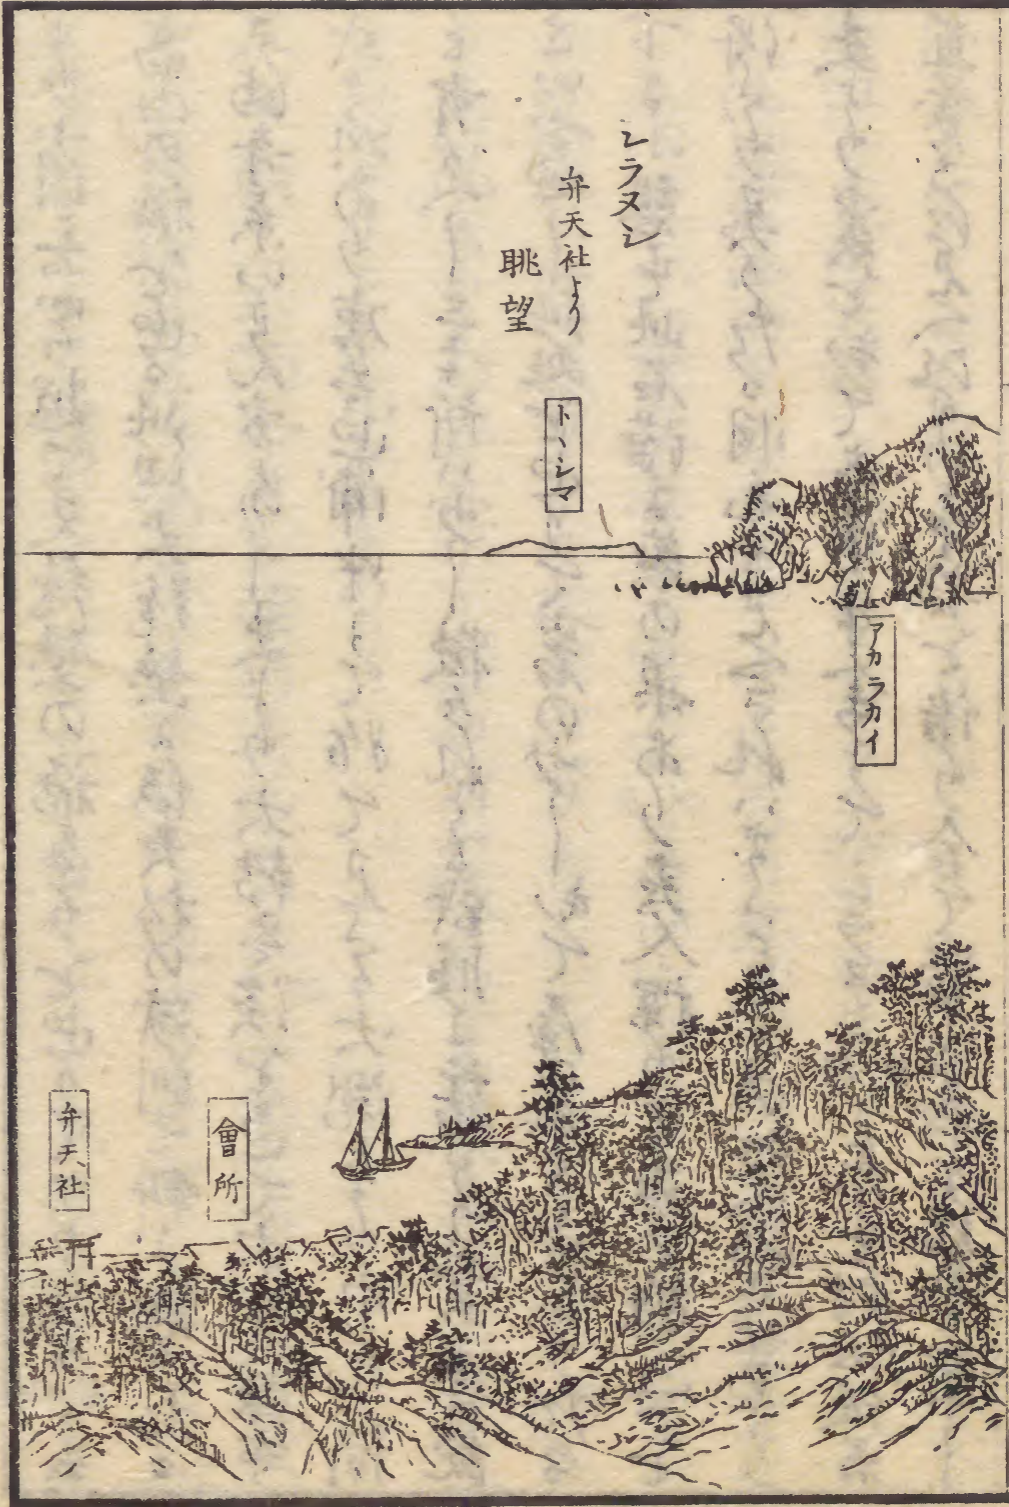 シラヌシ
弁天社より
眺望
トヽシマ
アカラカイ
會所
弁天社